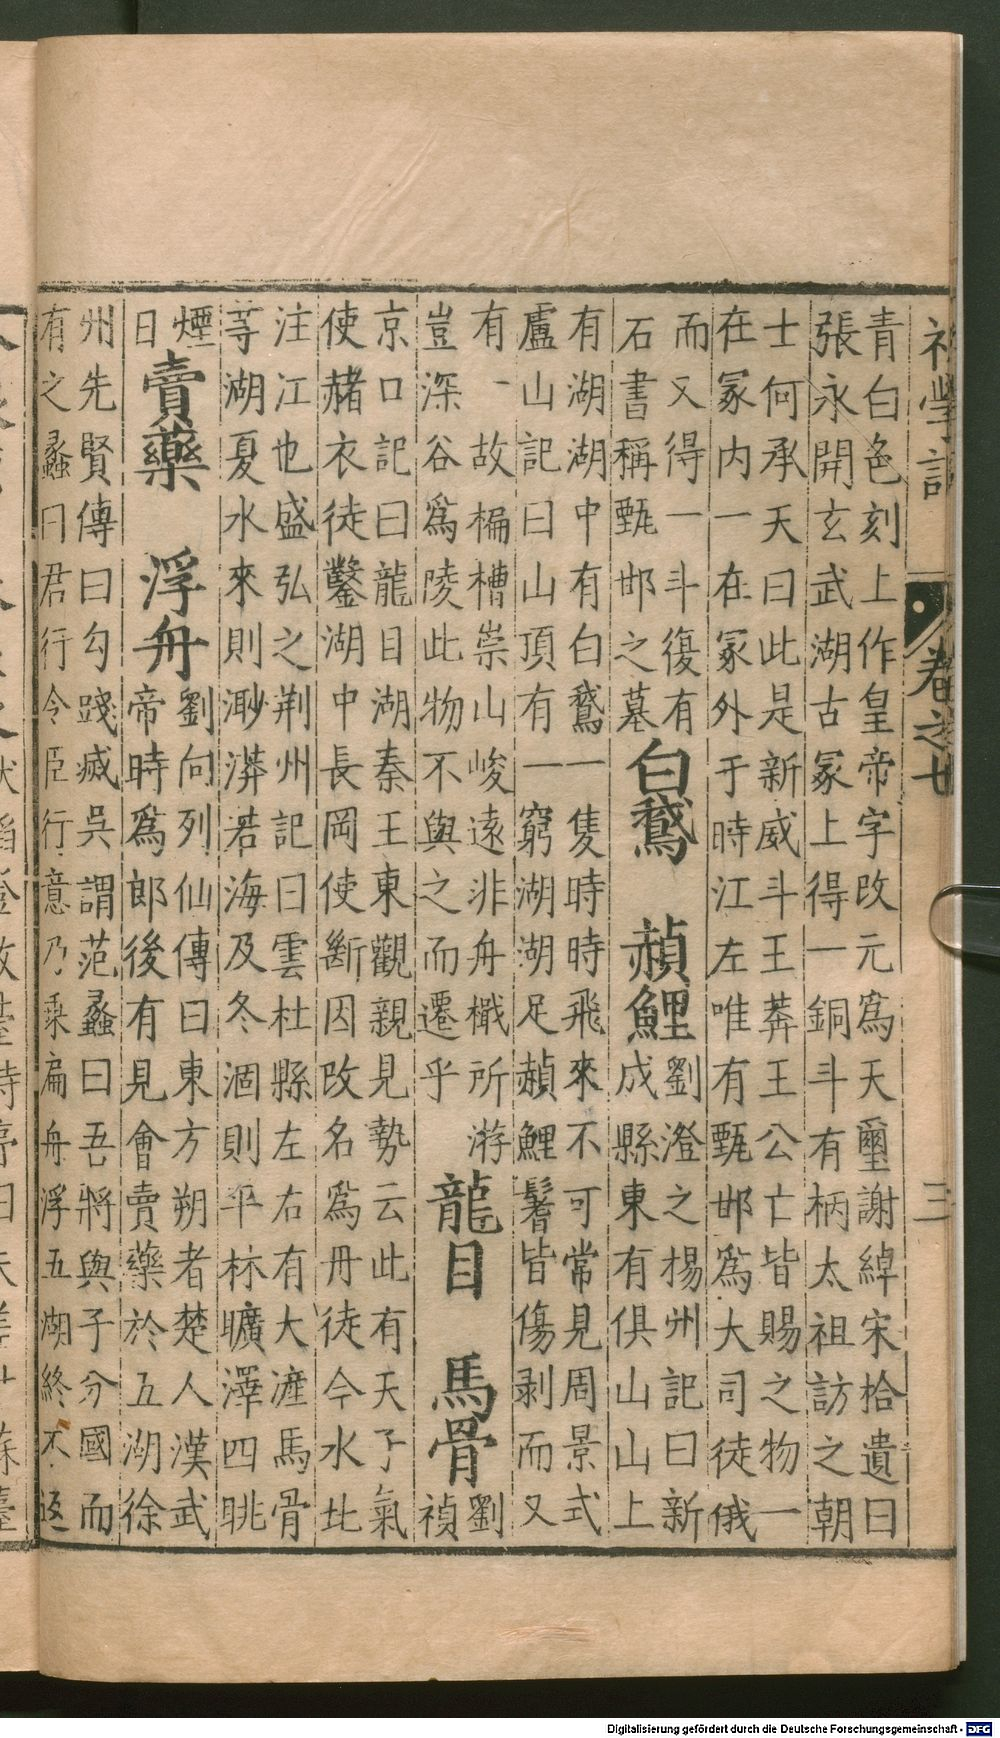 青白色刻上作皇帝字改元為天璽謝綽宋拾遺曰
張永開玄武湖古冢上得一銅斗有柄太祖訪之朝
士何承天曰此是新威斗王莽王公亡皆賜之物一
在冢内一在冢外于時江左唯有甄邯為大司徒俄
而又得一斗復有
石書稱甄邯之墓
白鵞 赬鯉
劉澄之楊州記曰新
成縣東有俱山山上
有湖湖中有白鵞一隻時時飛來不可常見周景式
盧山記曰山頂有一窮湖湖足赬鯉鬐皆傷剥而又
有一故楄槽崇山峻遠非舟檝所游
豈深谷為陵此物不與之而遷乎
龍目 馬骨
劉
禎
京口記曰龍目湖秦王東觀親見勢云此有天子氣
使赭衣徒鑿湖中長岡使斷因改名為丹徒今水北
注江也盛弘之荆州記曰雲杜縣左右有大滻馬骨
等湖夏水來則渺漭若海及冬涸則平林曠澤四眺
煙
日
賣藥 浮舟
劉向列仙傳曰東方朔者楚人漢武
帝時為郎後有見會賣藥於五湖徐
州先賢傳曰勾踐滅吳謂范蠡曰吾將與子分國而
有之蠡曰君行令臣行意乃乘扁舟浮五湖終不返
卷之七
三
Digitalisierung gefördert durch die Deutsche Forschungsgemeinschaft - DFG